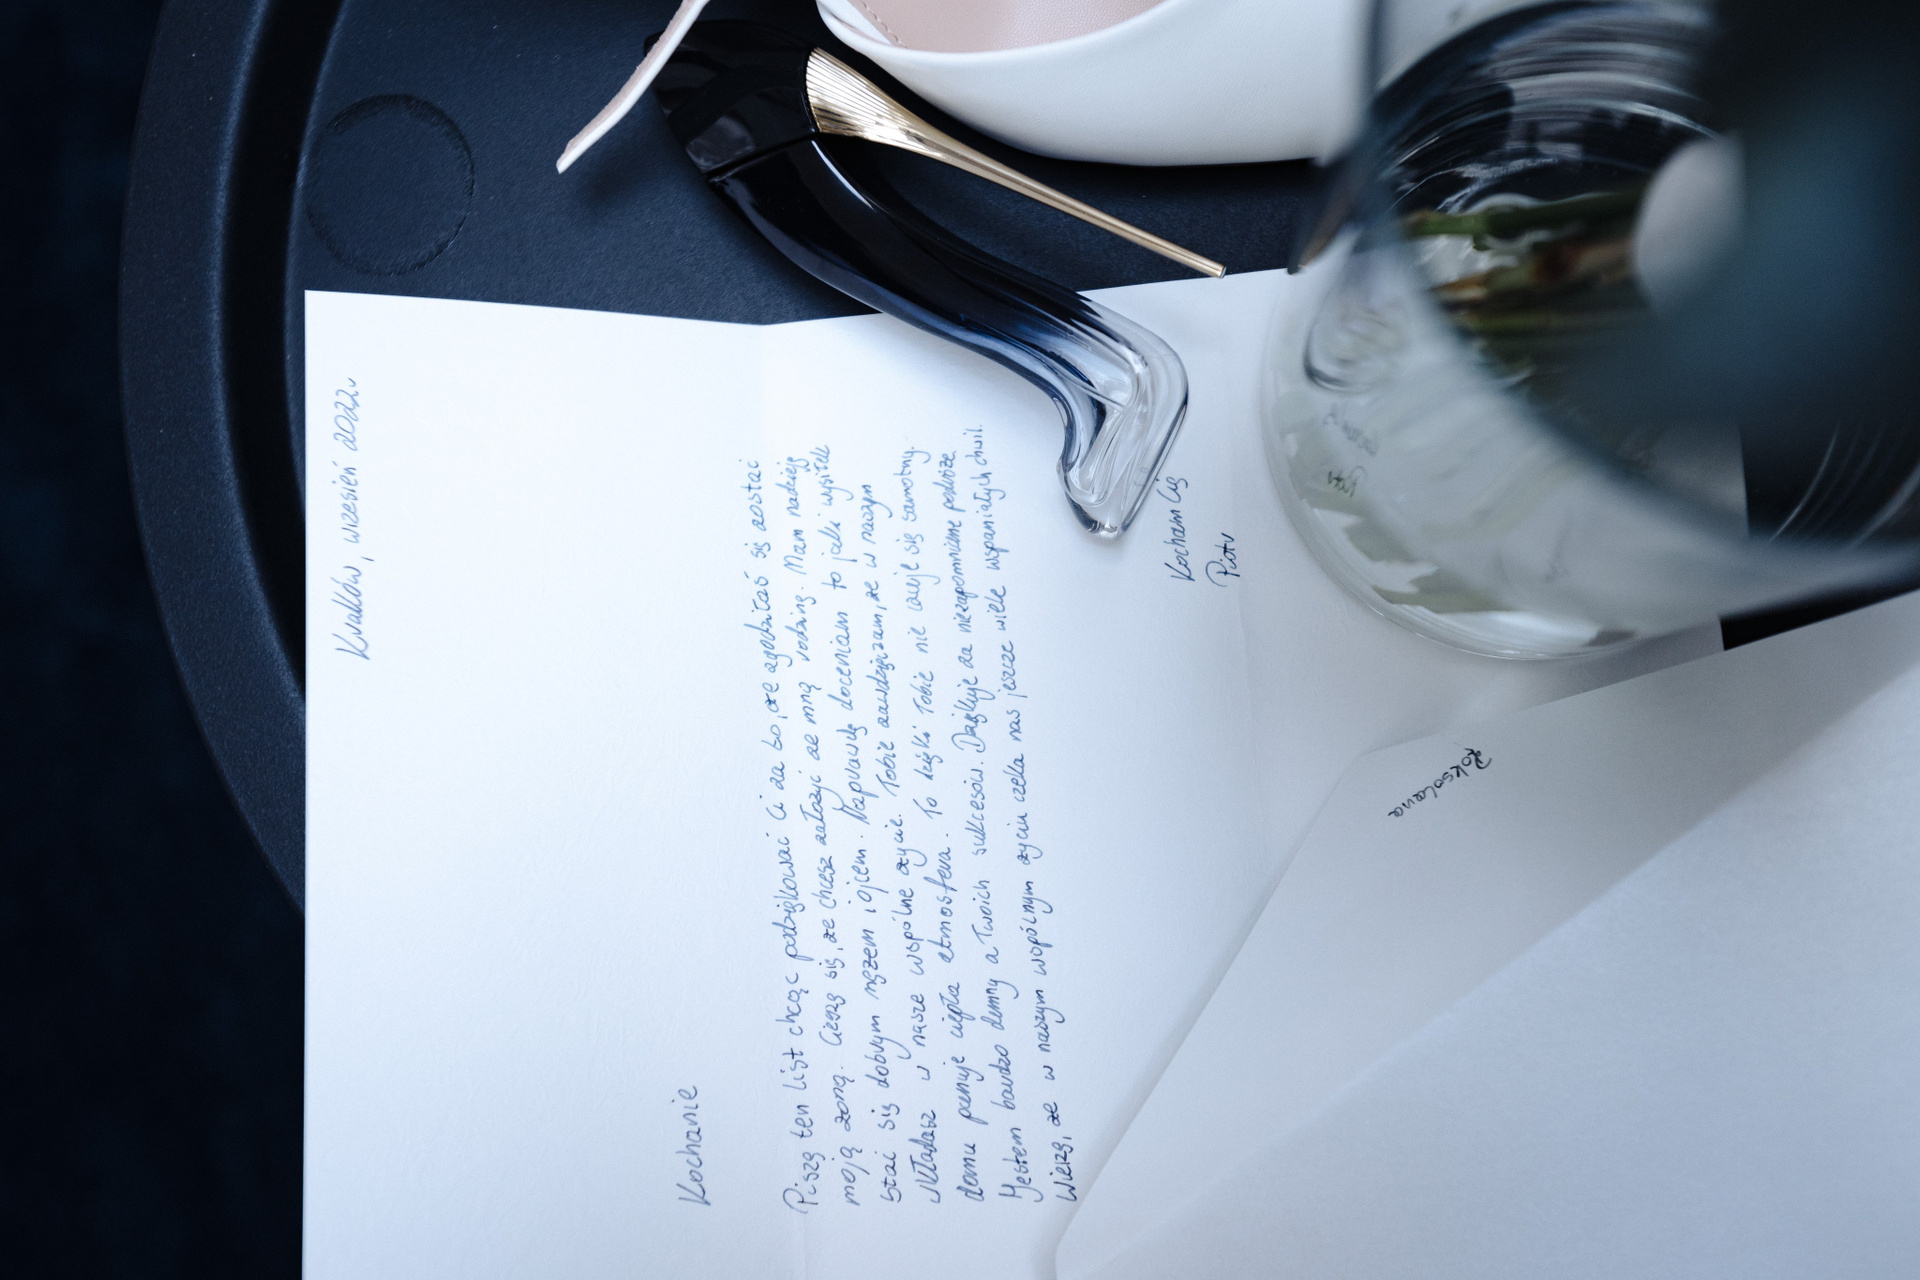 Kraków, wrzesień 2022r
Kochanie
Piszę ten list chcąc podziękować Ci za to, że zgodziłaś się zostać
moją żoną. Cieszę się, że chcesz założyć ze mną rodzinę. Mam nadzieję
stać się dobrym mężem i ojcem. Naprawdę doceniam to jaki wysiłek
wkładasz w nasze wspólne życie. Tobie zawdzięczam, że w naszym
domu panuje ciepła atmosfera. To dzięki Tobie nie czuje się samotny.
Jestem bardzo dumny z Twoich sukcesów. Dziękuje za niezapomniane podróże
Wierzę, że w naszym wspólnym życiu czeka nas jeszcze wiele wspaniałych chwil.
Kocham Cię
Piotr
Roksolana